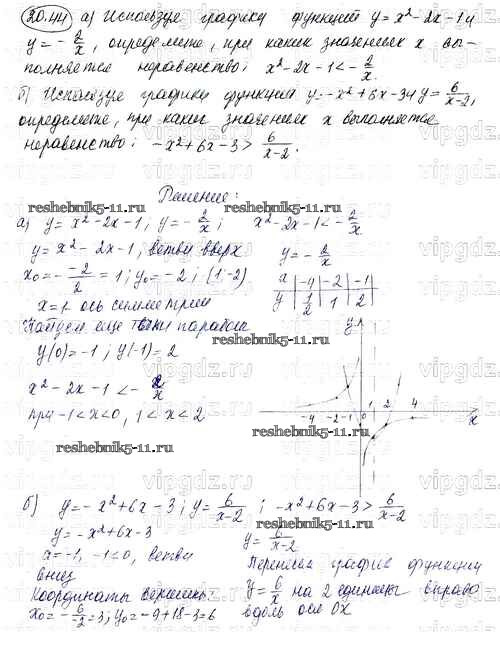 20.44 а) Используя графики функций y = x² - 2x - 1 и
y = - 2/x, определите, при каких значениях x вы-
полняется неравенство: x² - 2x - 1 < - 2/x.
б) Используя графики функций y = -x² + 6x - 3 и y = 6/(x-2),
определите, при каких значениях x выполняется
неравенство: -x² + 6x - 3 > 6/(x-2).
Решение:
reshebnik5-11.ru
reshebnik5-11.ru
а) y = x² - 2x - 1; y = - 2/x; x² - 2x - 1 < - 2/x
y = x² - 2x - 1, ветви вверх
y = - 2/x
x₀ = - -2/2 = 1; y₀ = -2; (1; -2)
x -4 -2 -1
y 1/2 1 2
x = 1 - ось симметрии
Найдем еще точки параболы
y(0) = -1; y(-1) = 2
reshebnik5-11.ru
x² - 2x - 1 < - 2/x
при -1 < x < 0, 1 < x < 2
y
-4 -2 -1 0 1 2 4
x
reshebnik5-11.ru
reshebnik5-11.ru
б) y = -x² + 6x - 3; y = 6/(x-2); -x² + 6x - 3 > 6/(x-2)
reshebnik5-11.ru
y = -x² + 6x - 3
y = 6/(x-2)
a = -1, -1 < 0, ветви
вниз
Перенесем график функции
y = 6/x на 2 единицы вправо
вдоль оси Ox
Координаты вершины:
reshebnik5-11.ru
reshebnik5-11.ru
x₀ = - 6/-2 = 3; y₀ = -9 + 18 - 3 = 6
vipgdz.ru